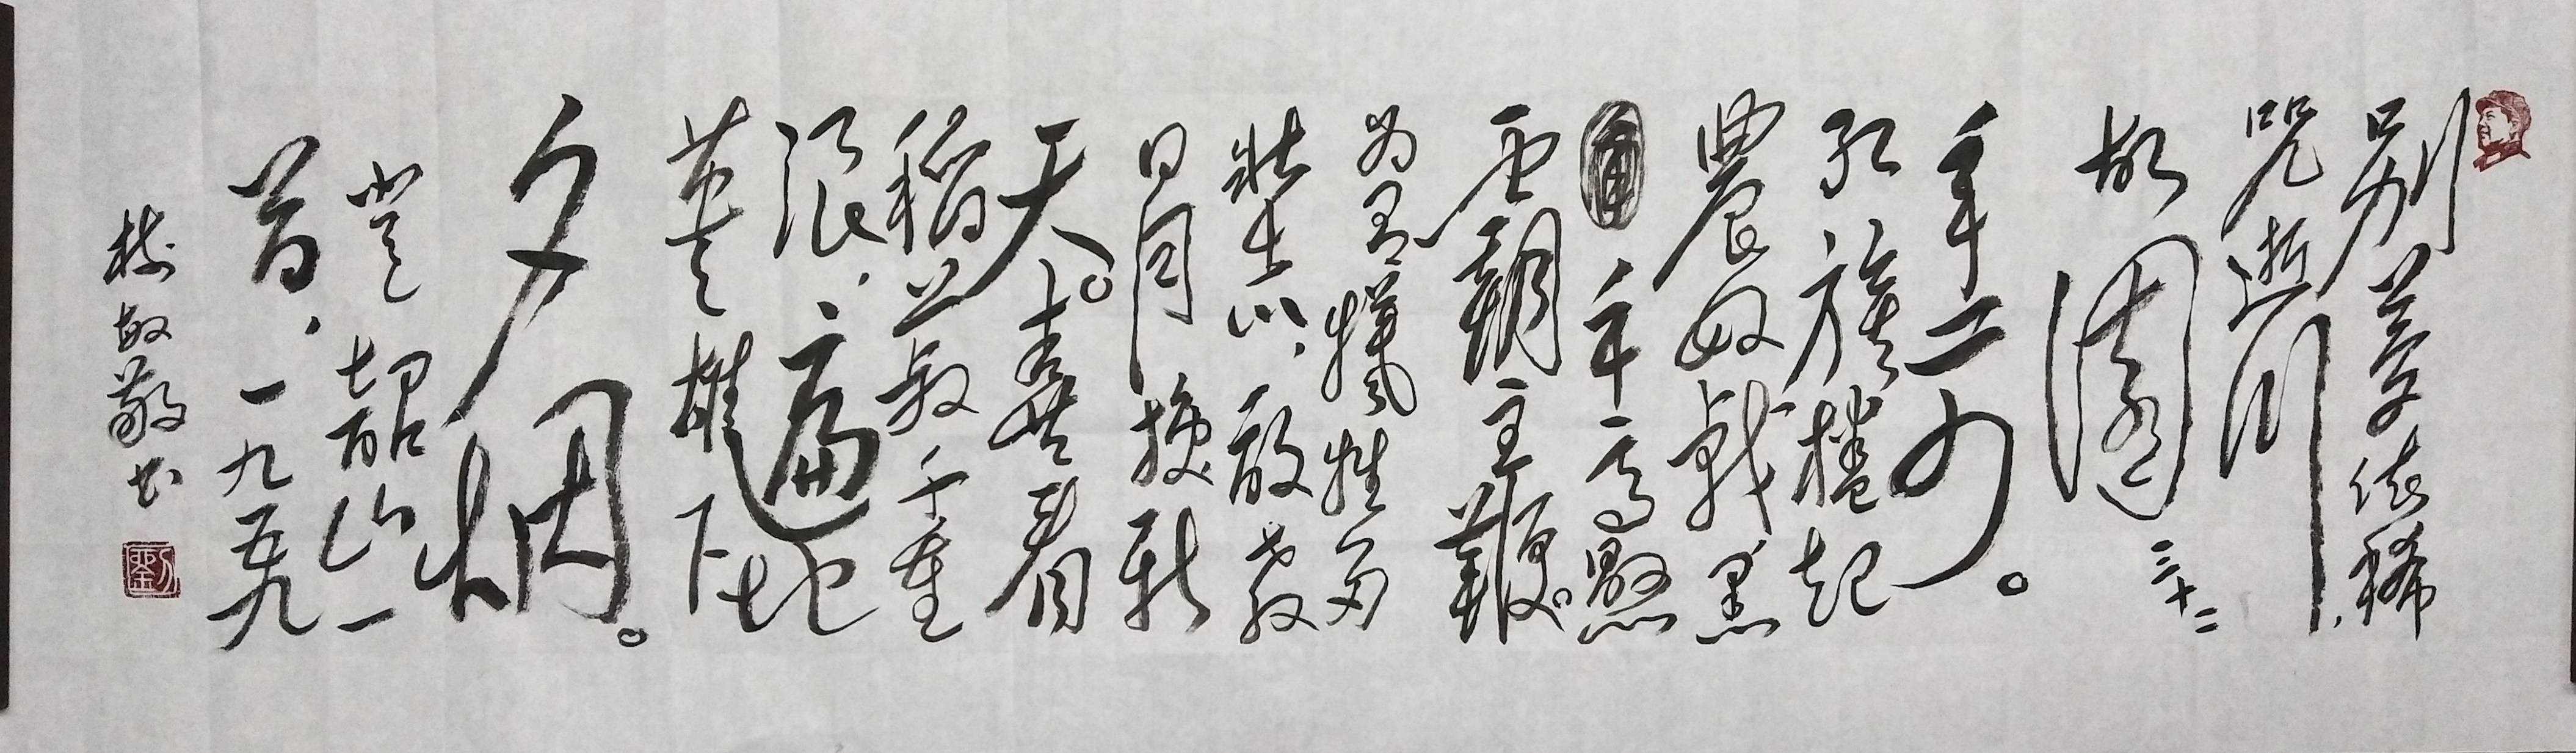 别梦依稀
咒逝川，
故園三十二
年前。
紅旗捲起
農奴戟黑
手高懸
霸主鞭
为有犧牲多
壮志，敢教
日月换新
天。喜看
稻菽千重
浪，遍地
英雄下
夕烟。
登韶山一
首，一九五九
敬书
劉